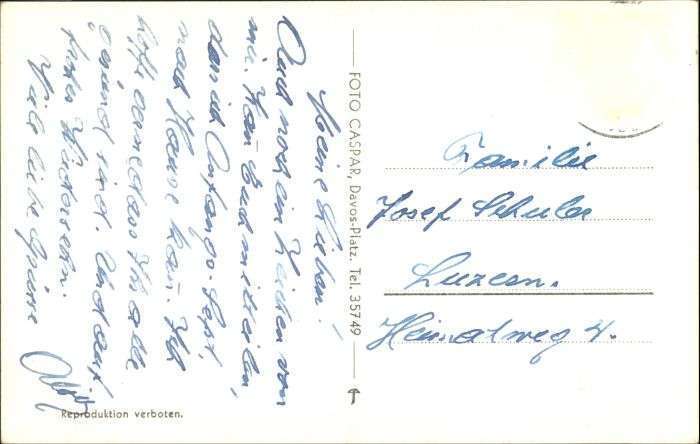 Meine Lieben!
Auch noch ein Zeichen von
mir. Kan Euch mitteilen,
das ich Anfangs Sept,
nach Hause kan. Ich
hoffe einsdass Ihr alle
gesund sind. Und auf
frohes Wiedersehn.
Viele liebe Grüsse
FOTO CASPAR, Davos-Platz. Tel. 35749
Familie
Josef Schuler
Luzern.
Heimatweg 4.
Reproduktion verboten.